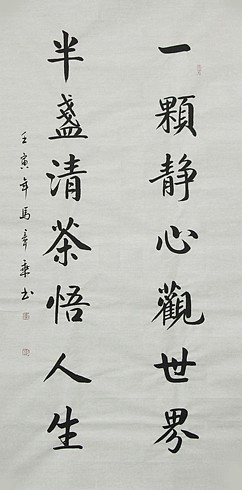 一顆静心觀世界
半盞清茶悟人生
壬寅年馬
书